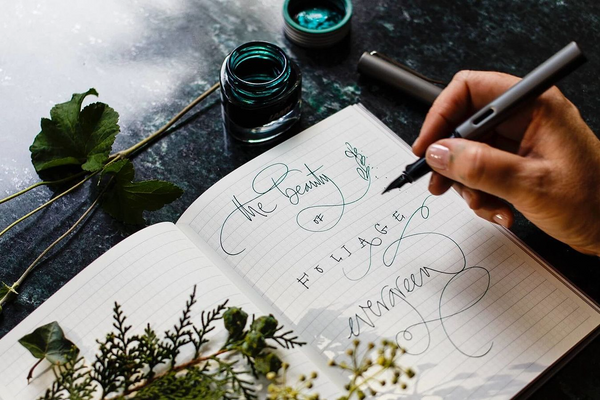 the Beauty
OF
FOLIAGE
evergreen